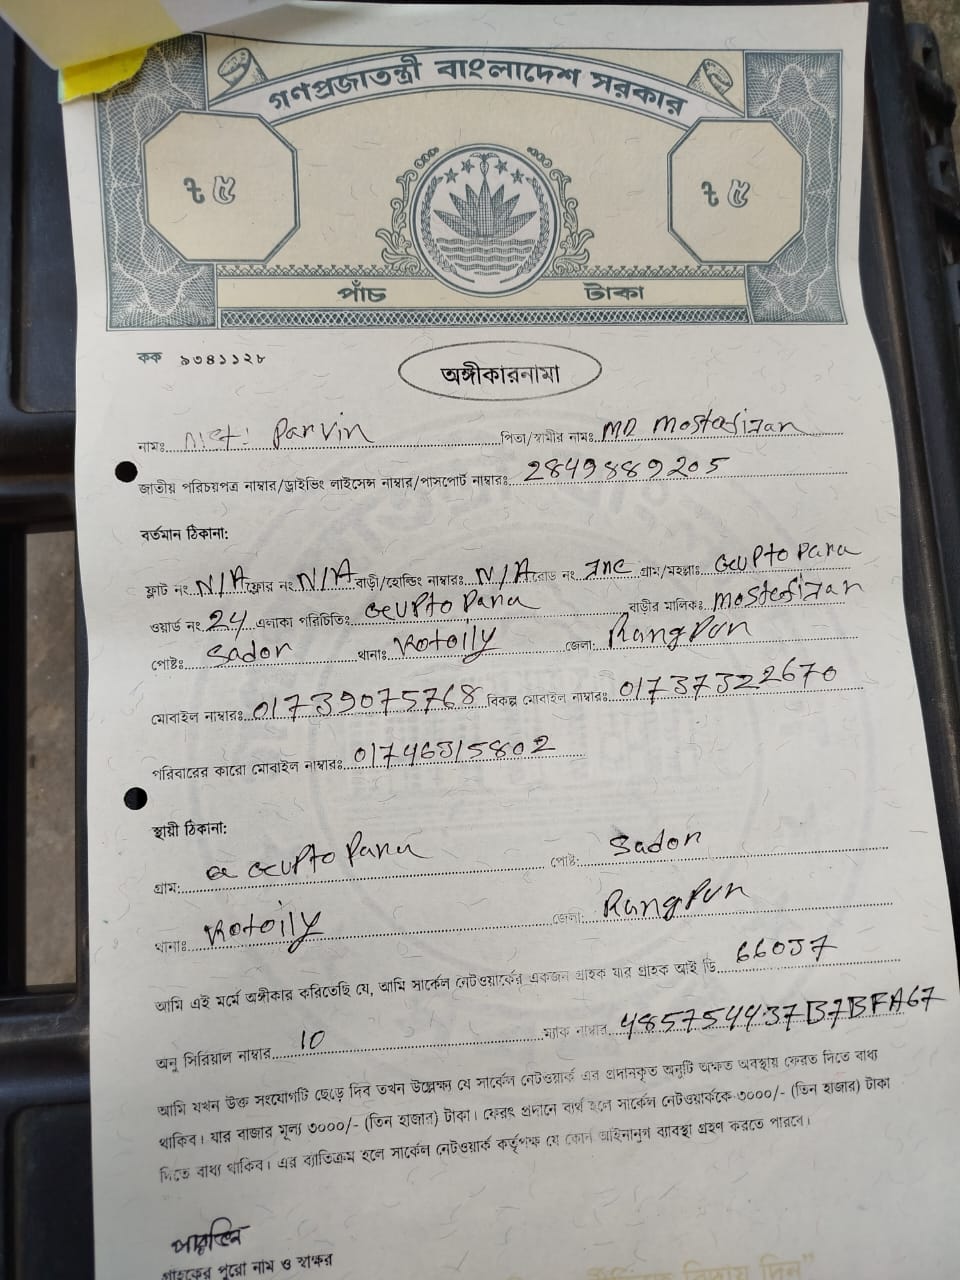 গণপ্রজাতন্ত্রী বাংলাদেশ সরকার
৳ ৫ ৳ ৫
পাঁচ টাকা
কক ৯৩৪১১২৮
অঙ্গীকারনামা
নামঃ Mst: Parvin পিতা/স্বামীর নামঃ MD Mostafizan
জাতীয় পরিচয়পত্র নাম্বার/ড্রাইভিং লাইসেন্স নাম্বার/পাসপোর্ট নাম্বারঃ 2849889205
বর্তমান ঠিকানা:
ফ্লাট নং N/A ফ্লোর নং N/A বাড়ী/হোল্ডিং নাম্বারঃ N/A রোড নং গ্রাম/মহল্লাঃ Gupto Para
ওয়ার্ড নং 24 এলাকা পরিচিতিঃ Gupto Para বাড়ীর মালিকঃ Mostafizan
পোষ্টঃ Sador থানাঃ Kotoily জেলা: Rangpur
মোবাইল নাম্বারঃ 01739075768 বিকল্প মোবাইল নাম্বারঃ 01737322670
পরিবারের কারো মোবাইল নাম্বারঃ 01746515802
স্থায়ী ঠিকানা:
গ্রাম: Gupto Para পোষ্ট: Sador
থানাঃ Kotoily জেলা: Rangpur
আমি এই মর্মে অঙ্গীকার করিতেছি যে, আমি সার্কেল নেটওয়ার্কের একজন গ্রাহক যার গ্রাহক আই ডি 66057
অনু সিরিয়াল নাম্বার 10 ম্যাক নাম্বার 485754437B7BFA67
আমি যখন উক্ত সংযোগটি ছেড়ে দিব তখন উল্লেক্ষ্য যে সার্কেল নেটওয়ার্ক এর প্রদানকৃত অনুটি অক্ষত অবস্থায় ফেরত দিতে বাধ্য
থাকিব। যার বাজার মূল্য ৩০০০/- (তিন হাজার) টাকা। ফেরৎ প্রদানে ব্যর্থ হলে সার্কেল নেটওয়ার্ককে ৩০০০/- (তিন হাজার) টাকা
দিতে বাধ্য থাকিব। এর ব্যতিক্রম হলে সার্কেল নেটওয়ার্ক কর্তৃপক্ষ যে কোন আইনানুগ ব্যবস্থা গ্রহণ করতে পারবে।
পারভিন
গ্রাহকের পুরো নাম ও স্বাক্ষর
দিন"